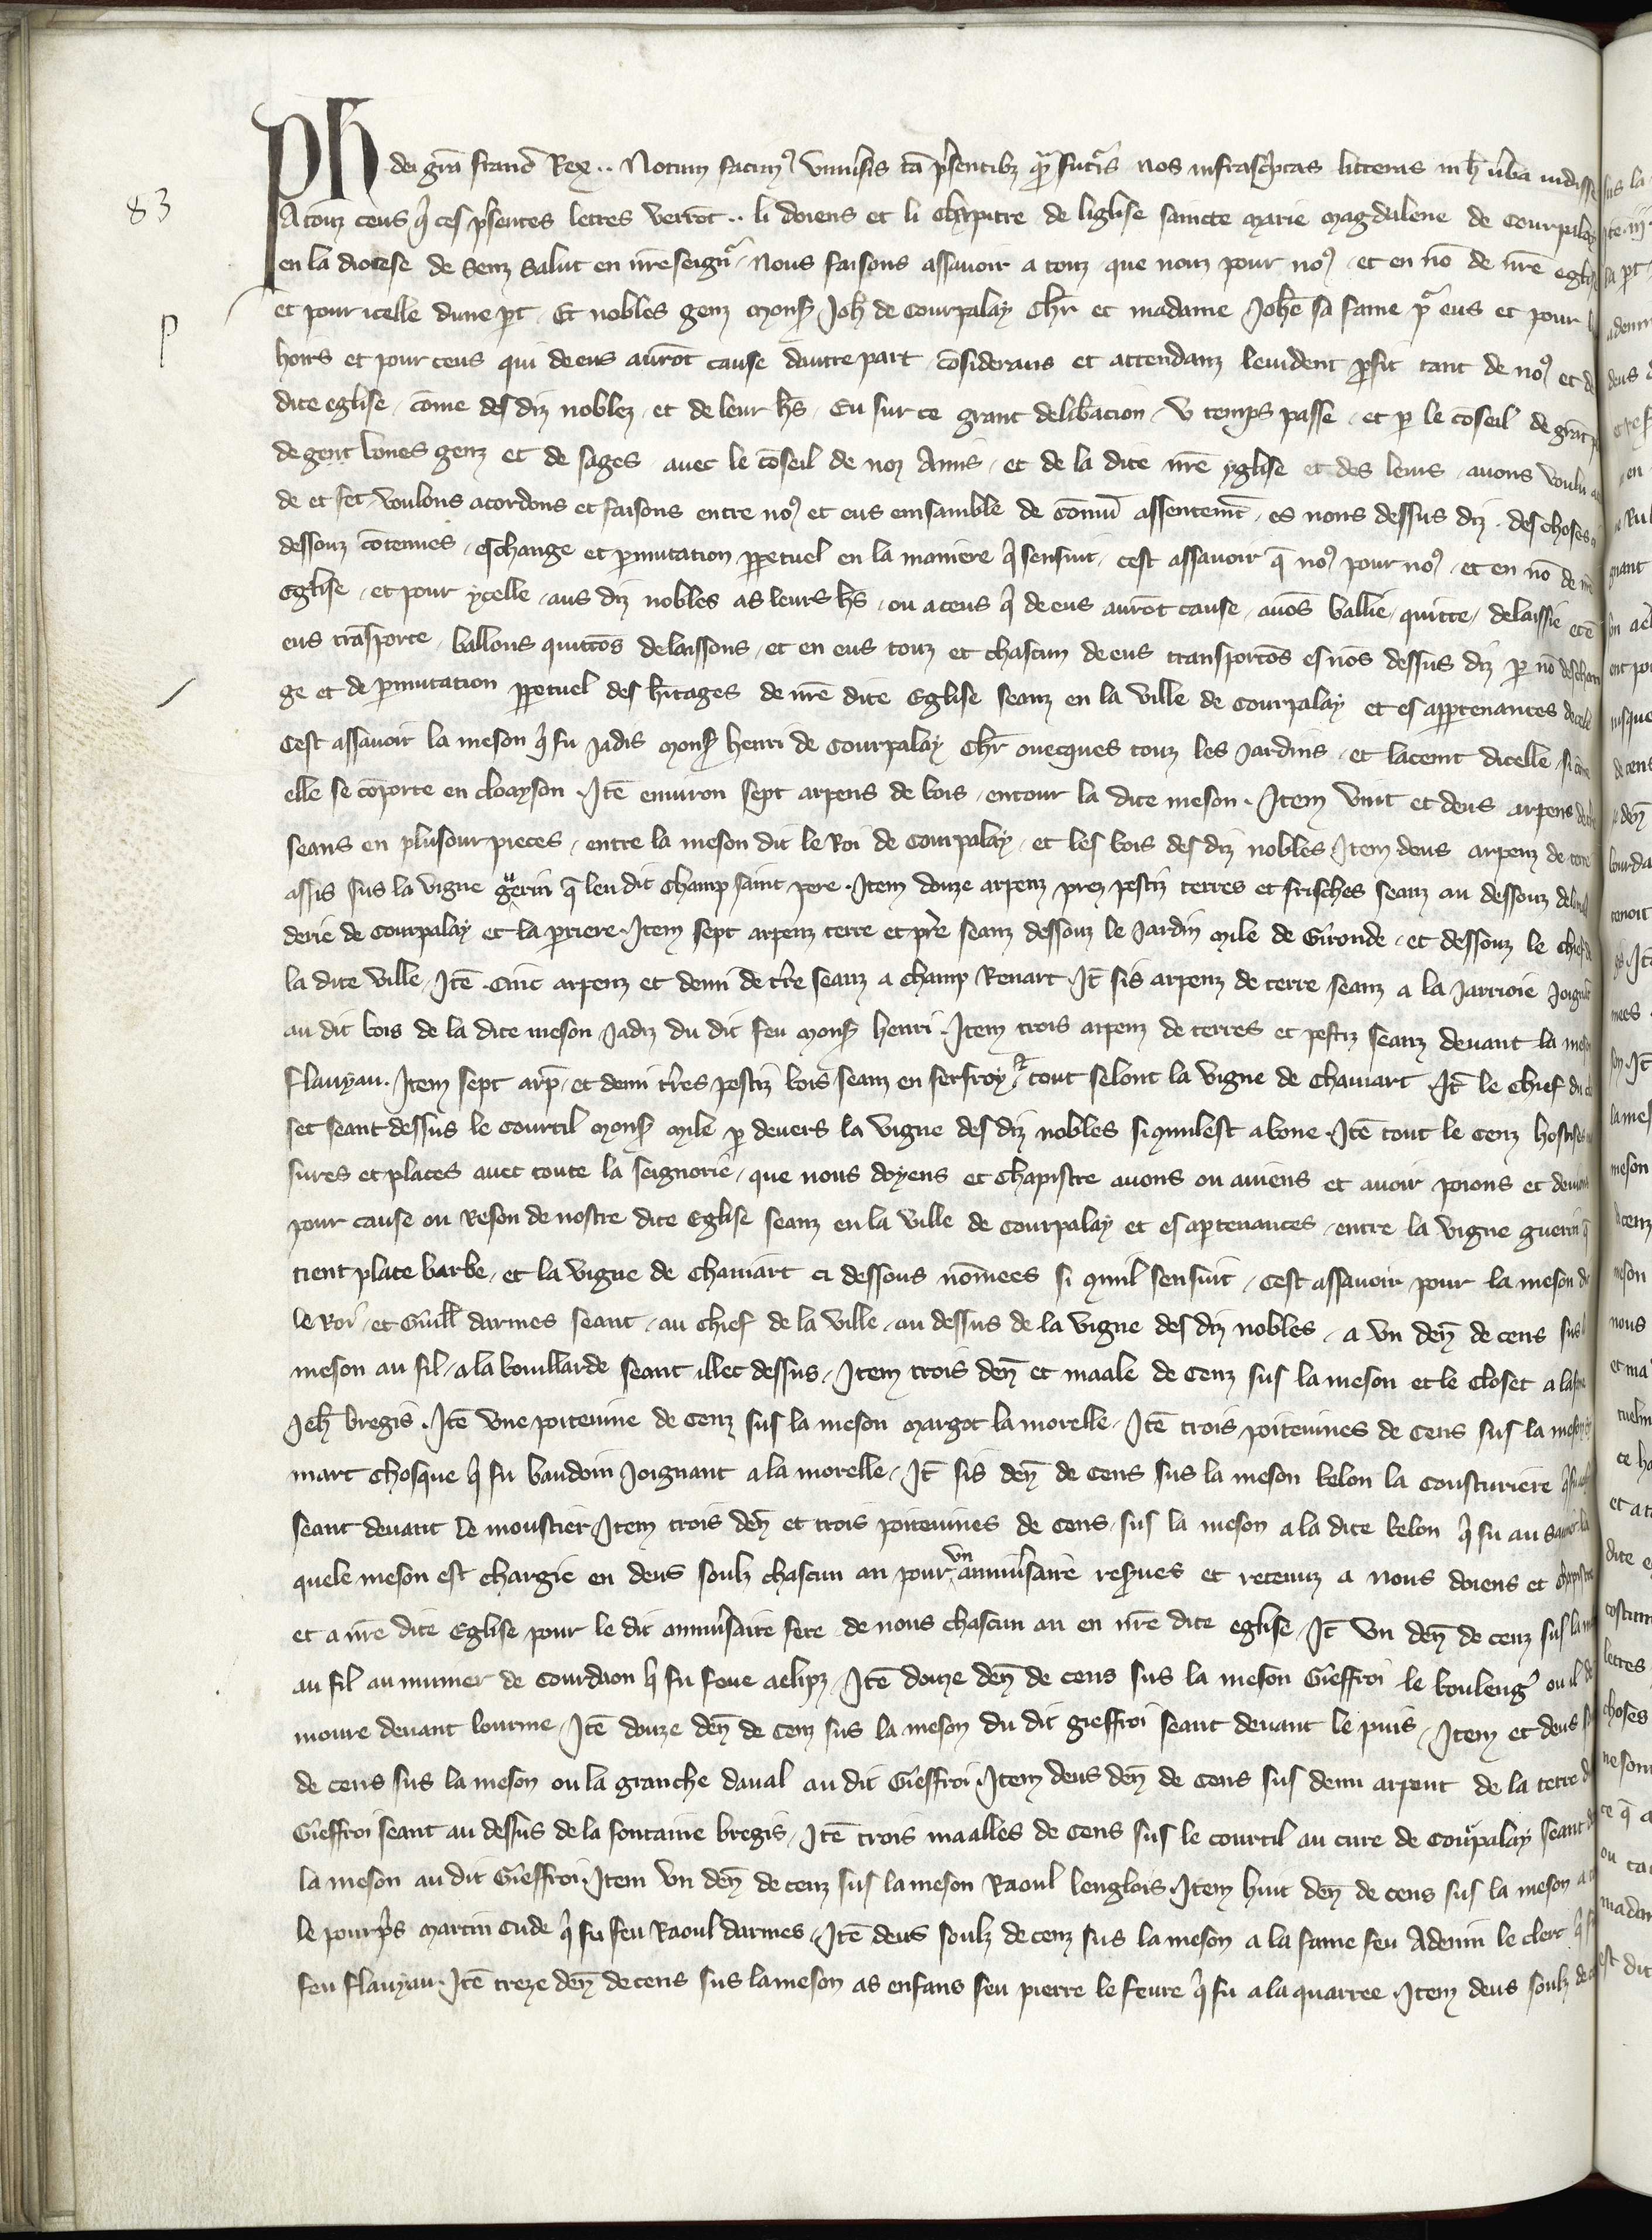 Ph dei gra francor Rex .. Notum facimꝰ vniuersis tā presentibꝫ quā futuris nos infrascriptas litteras in hec verba vidisse
83
A touz ceus qi ces presentes lettres verrōt .. li doiens et li chapitre de liglise saincte marie magdalene de Courpalay
en la diocese de Senz Salut en nr̄e seignr. Nous faisons assauoir a touz que nouz pour noꝰ et en nō de nr̄e eglise
et pour icelle dune pt. Et nobles genz monsr Joh̄ de Courpalay Chlr et madame Joh̄e sa fame pr eus et pour
P
hoirs et pour ceus qui de eus aurōt cause dautre part cōsiderans et attendanz leuident proufit tant de noꝰ et de
dite eglise cōme des diz noblez et de leur h̄s. Eu sur ce grant deliberacion v temps passe et p le cōseil de grāt
de gent bones genz et de sages auec le cōseil de noz Amis et de la dite nr̄e yglise et des leurs auons voulu
de et fet voulons acordons et faisons entre noꝰ et eus emsamble de cōmū assentemt es nons dessus diz des choses
dessouz cōtenues eschange et pmutation ppetuel en la maniere qi sensuit cest assauoir q̄ noꝰ pour noꝰ et en nō de nr̄e
Eglise et pour ycelle aus diz nobles as leurs h̄s ou a ceus qi de eus aurōt cause auōs baillie quitte delaissie et ē
eus trāsporte ballons quittōs delaissons et en eus touz et chascun de eus transportōs es nōs dessus diz p nō deschan
ge et de pmutation ppetuel des h̄itages de nr̄e dite Eglise seanz en la ville de Courpalay et es apptenances
Cest assauoir la meson qi fu jadis monsr henri de Courpalay Chlr ouecques touz les Jardins et lacent dicelle si cōme
elle se cōporte en cloayson. Itē enuiron sept arpens de bois entour la dite meson. Item vint et deus arpens
seans en plusour pieces entre la meson dit le Roi de Courpalay et les bois des diz nobles Item deus arpenz de terre
assis sus la vigne guerin q̄ len dit champ saint pere. Item douze arpenz prez pestiz terres et frisches seanz au dessouz
derie de Courpalay et la priere. Item sept arpenz terre et pre seanz dessouz le Jardin Mile de Gironde et dessouz le chief
la dite ville Itē Cinc arpenz et demi de tr̄re seanz a champ Renart It̄ sis arpenz de terre seanz a la Jarrioie Joignāt
au dit bois de la dite meson Jadiz du dit feu monsr henri. Item trois arpenz de terres et pestiz seanz deuant la meson
flauyau. Item sept arp̄. et demi tr̄res pestiz bois seanz en ferfroy tout selont la vigne de Chauiart It̄ le Chief
set seant dessus le Courtil monsr Mile p deuers la vigne des diz nobles si qmilest abone. Itē tout le cenz hostises
sures et places auec toute la seignorie que nous doyens et chapistre auons ou auiens et auoir poions et deuions
pour cause ou Reson de nostre dite Eglise seanz en la ville de Courpalay et es aptenances entre la vigne guerin q̄
tient place barbe et la vigne de Chauiart ci dessous nōmees si qmil sensuit cest assauoir pour la meson
le Roi et Guill̄ darmes seant au chief de la ville au dessus de la vigne des diz nobles a vn den̄ de cens sus
meson au fil a la bouillarde seant illec dessus. Item trois den̄ et maale de cenz sus la meson et le closet a la
Jeh̄ bregis. Itē vne poiteuine de Cenz sus la meson Margot la morelle. Itē trois poiteuines de Cens sus la meson
mart Chosque qi fu baudoin Joignant a la morelle. It̄ sis den̄ de cens sus la meson belon la cousturiere
seant deuant le moustier. Item trois den̄ et trois poiteuines de cens sus la meson a la dite belon qi fu au
quele meson est chargie en deus soulz chascun an pour vn anniuersaire reserues et retenuz a nous doiens et chapistre
et a nr̄e dite Eglise pour le dit anniuersaire fere de nous chascun an en nr̄e dite eglise. It̄ vn den̄ de cenz sus la
au fil au munier de Courdaon qi fu feue aelipz. Itē douze den̄ de cens sus la meson Gieffroi le bouleng ou il
moure deuant lourme. Itē douze den̄ de cenz sus la meson du dit gieffroi seant deuant le puis. Item et deus
de cens sus la meson ou la granche daual au dit Gieffroi. Item deus den̄ de cens sus demi arpent de la terre
Gieffroi seant au dessus de la fontaine bregis. Itē trois maalles de cens sus le courtil au cure de Courpalay seant
la meson au dit Gieffroi. Item vn den̄ de cenz sus la meson Raoul lenglois. Item huit den̄ de cens sus la meson
le pourpris martin Cude qi fu feu Raoul darmes. Itē deus soulz de cenz sus la meson a la fame feu Adenin le clerc
feu flauyau. Itē treze den̄ de cens sus la meson as enfans feu pierre le feure qi fu a la quarree. Item deus soulz